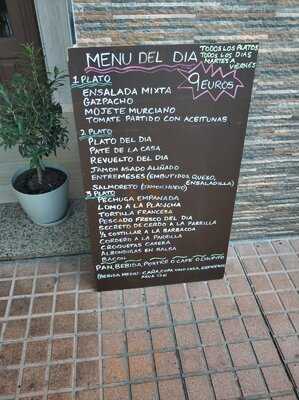 MENU DEL DIA
TODOS LOS PLATOS
TODOS LOS DIAS
MARTES A
VIERNES
9 EUROS
1 PLATO
ENSALADA MIXTA
GAZPACHO
MOJETE MURCIANO
TOMATE PARTIDO CON ACEITUNAS
2 PLATO
PLATO DEL DIA
PATE DE LA CASA
REVUELTO DEL DIA
JAMON ASADO ALIÑADO
ENTREMESES (EMBUTIDOS, QUESO,
ENSALADILLA)
SALMOREJO (JAMON, HUEVO)
3 PLATO
PECHUGA EMPANADA
LOMO A LA PLANCHA
TORTILLA FRANCESA
PESCADO FRESCO DEL DIA
SECRETO DE CERDO A LA PARRILLA
½ COSTILLAR A LA BARBACOA
CORDERO A LA PARRILLA
CROQUETAS CASERA
ALBONDIGAS EN SALSA
BACON
PAN, BEBIDA, POSTRE O CAFE O CHUPITO
BEBIDA MENU: CAÑA, COPA VINO CASA, REFRESCO
AGUA